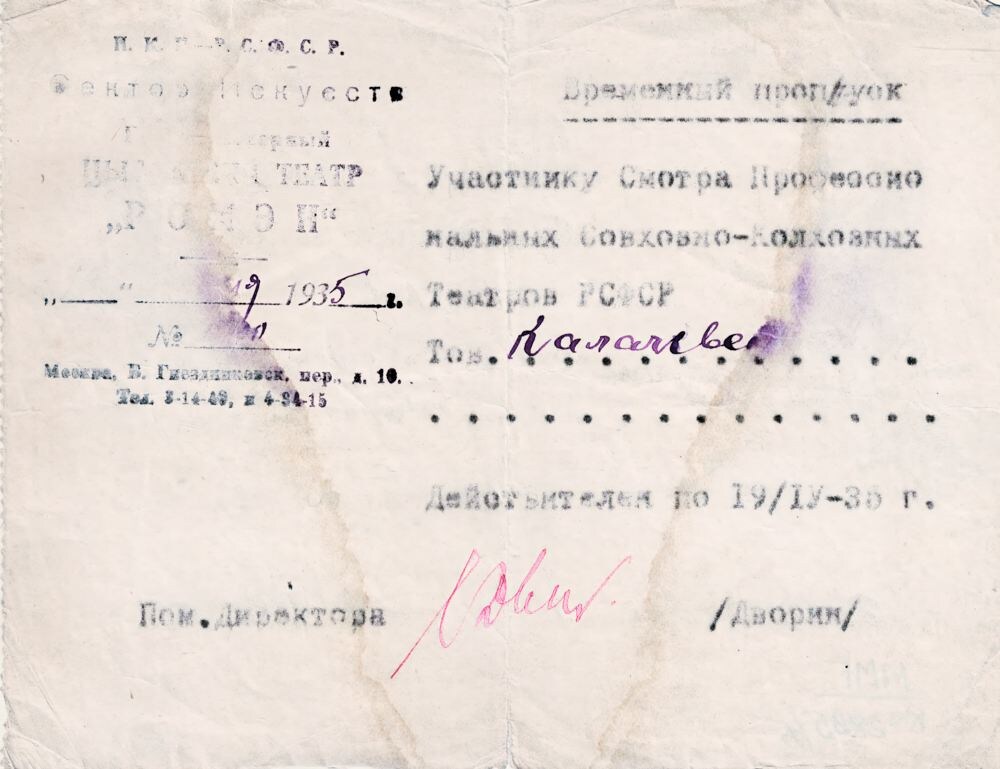 Н. К. П. Р. С. Ф. С. Р.
Сектор Искусств
ЦЫГАНСКИЙ ТЕАТР
„РОМЭН“
„ “ 1935 г.
№
Москва, Б. Гнездниковск. пер., д. 10.
Тел. 3-14-49, и 4-34-15
Временный проп/уск
Участнику Смотра Профессио
нальных Совхозно-Колхозных
Театров РСФСР
Тов. . . . . . . . . . . . . .
. . . . . . . . . . . . . . .
Действителен по 19/IУ-35 г.
Пом.Директора /Дворин/